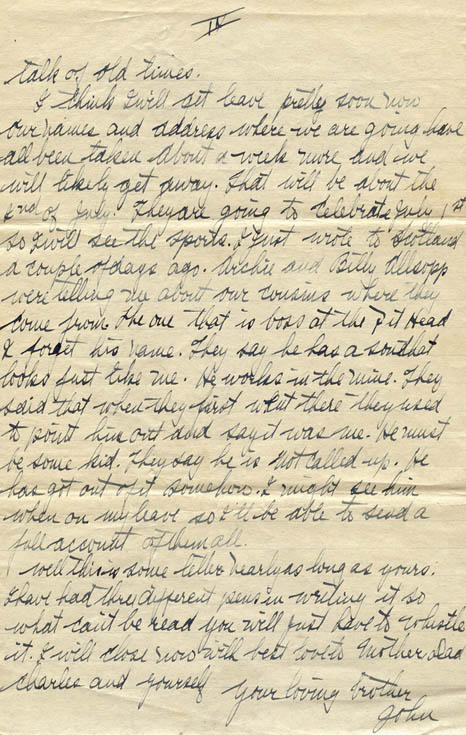 IV
talk of old times.
I think I will get leave pretty soon now
our names and address where we are going have
all been taken about a week more and we
will likely get away. That will be about the
2nd of July. They are going to celebrate July 1st
so I will see the sports. I just wrote to Scotland
a couple of days ago. Archie and Billy Allsopp
were telling me about our cousins where they
come from the one that is boss at the Pit Head
I forget his name. They say he has a son that
looks just like me. He works in the mine. They
said that when they first went there they used
to point him out and say it was me. He must
be some kid. They say he is not called up. He
has got out of it somehow. I might see him
when on my leave so I'll be able to send a
full account of them all.
Well this is some letter nearly as long as yours.
I have had three different pens in writing it so
what can't be read you will just have to whistle
it. I will close now with best love to Mother, Dad
Charles and yourself
Your loving brother
John